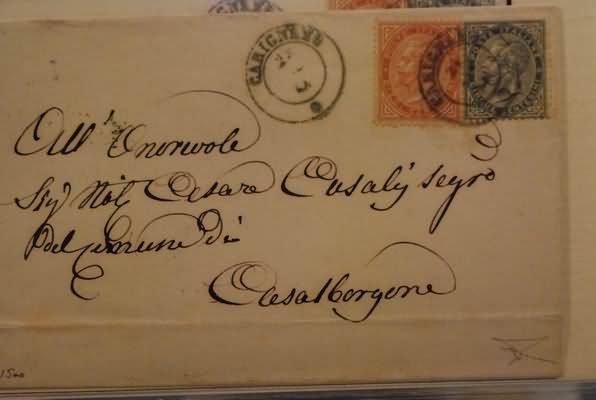 CARIGNANO
All' Onorevole
Sig. Not. Cesare Casaly segro
del Comune di
Casalborgone
1500